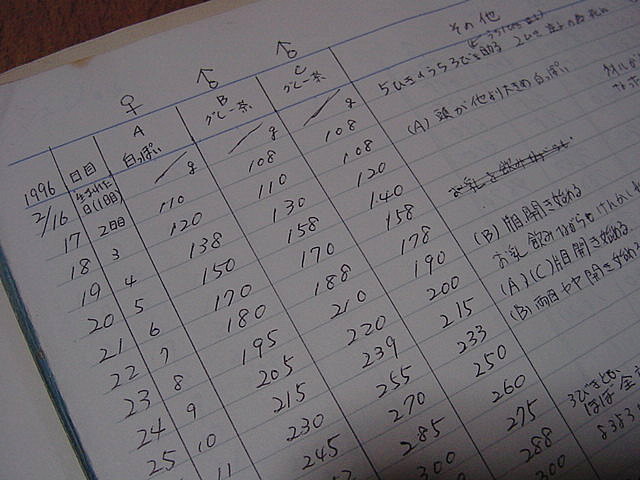 その他
♀ ♂ ♂
A B C
白っぽい グレー茶 グレー茶
5ひきのうち3びき助る 2ひき
1996 日目 g g g
2/16 生まれた日(1日目)
17 2日目 110 108 108
18 3 120 110 108
19 4 138 130 120
20 5 150 158 140
21 6 170 170 158
22 7 180 188 178
23 8 195 210 190
24 9 205 220 200
25 10 215 239 215
11 230 255 233
245 270 250
285 260
300 275
288
300
(A) 頭が他より大きめ 白っぽい
(B) 片目開き始める
お乳 飲みながら
(A)(C)片目開き始める
(B) 両目やや開き始め
3びきとも
ほぼ全